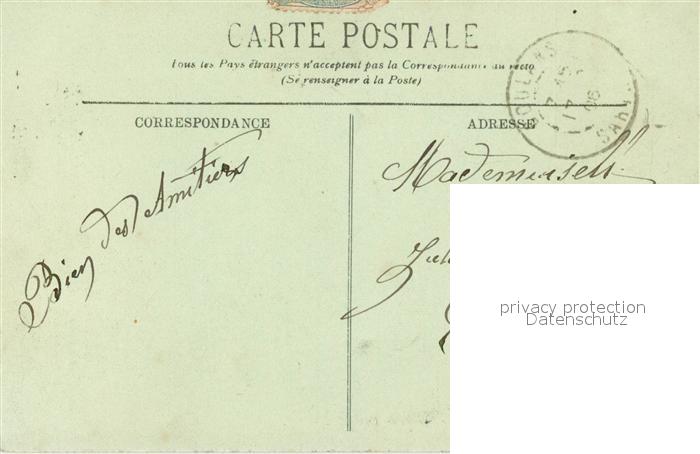 CARTE POSTALE
Tous les Pays étrangers n'acceptent pas la Correspondance au recto
(Se renseigner à la Poste)
CORRESPONDANCE
ADRESSE
Bien des Amitiés
Mademoiselle
privacy protection
Datenschutz